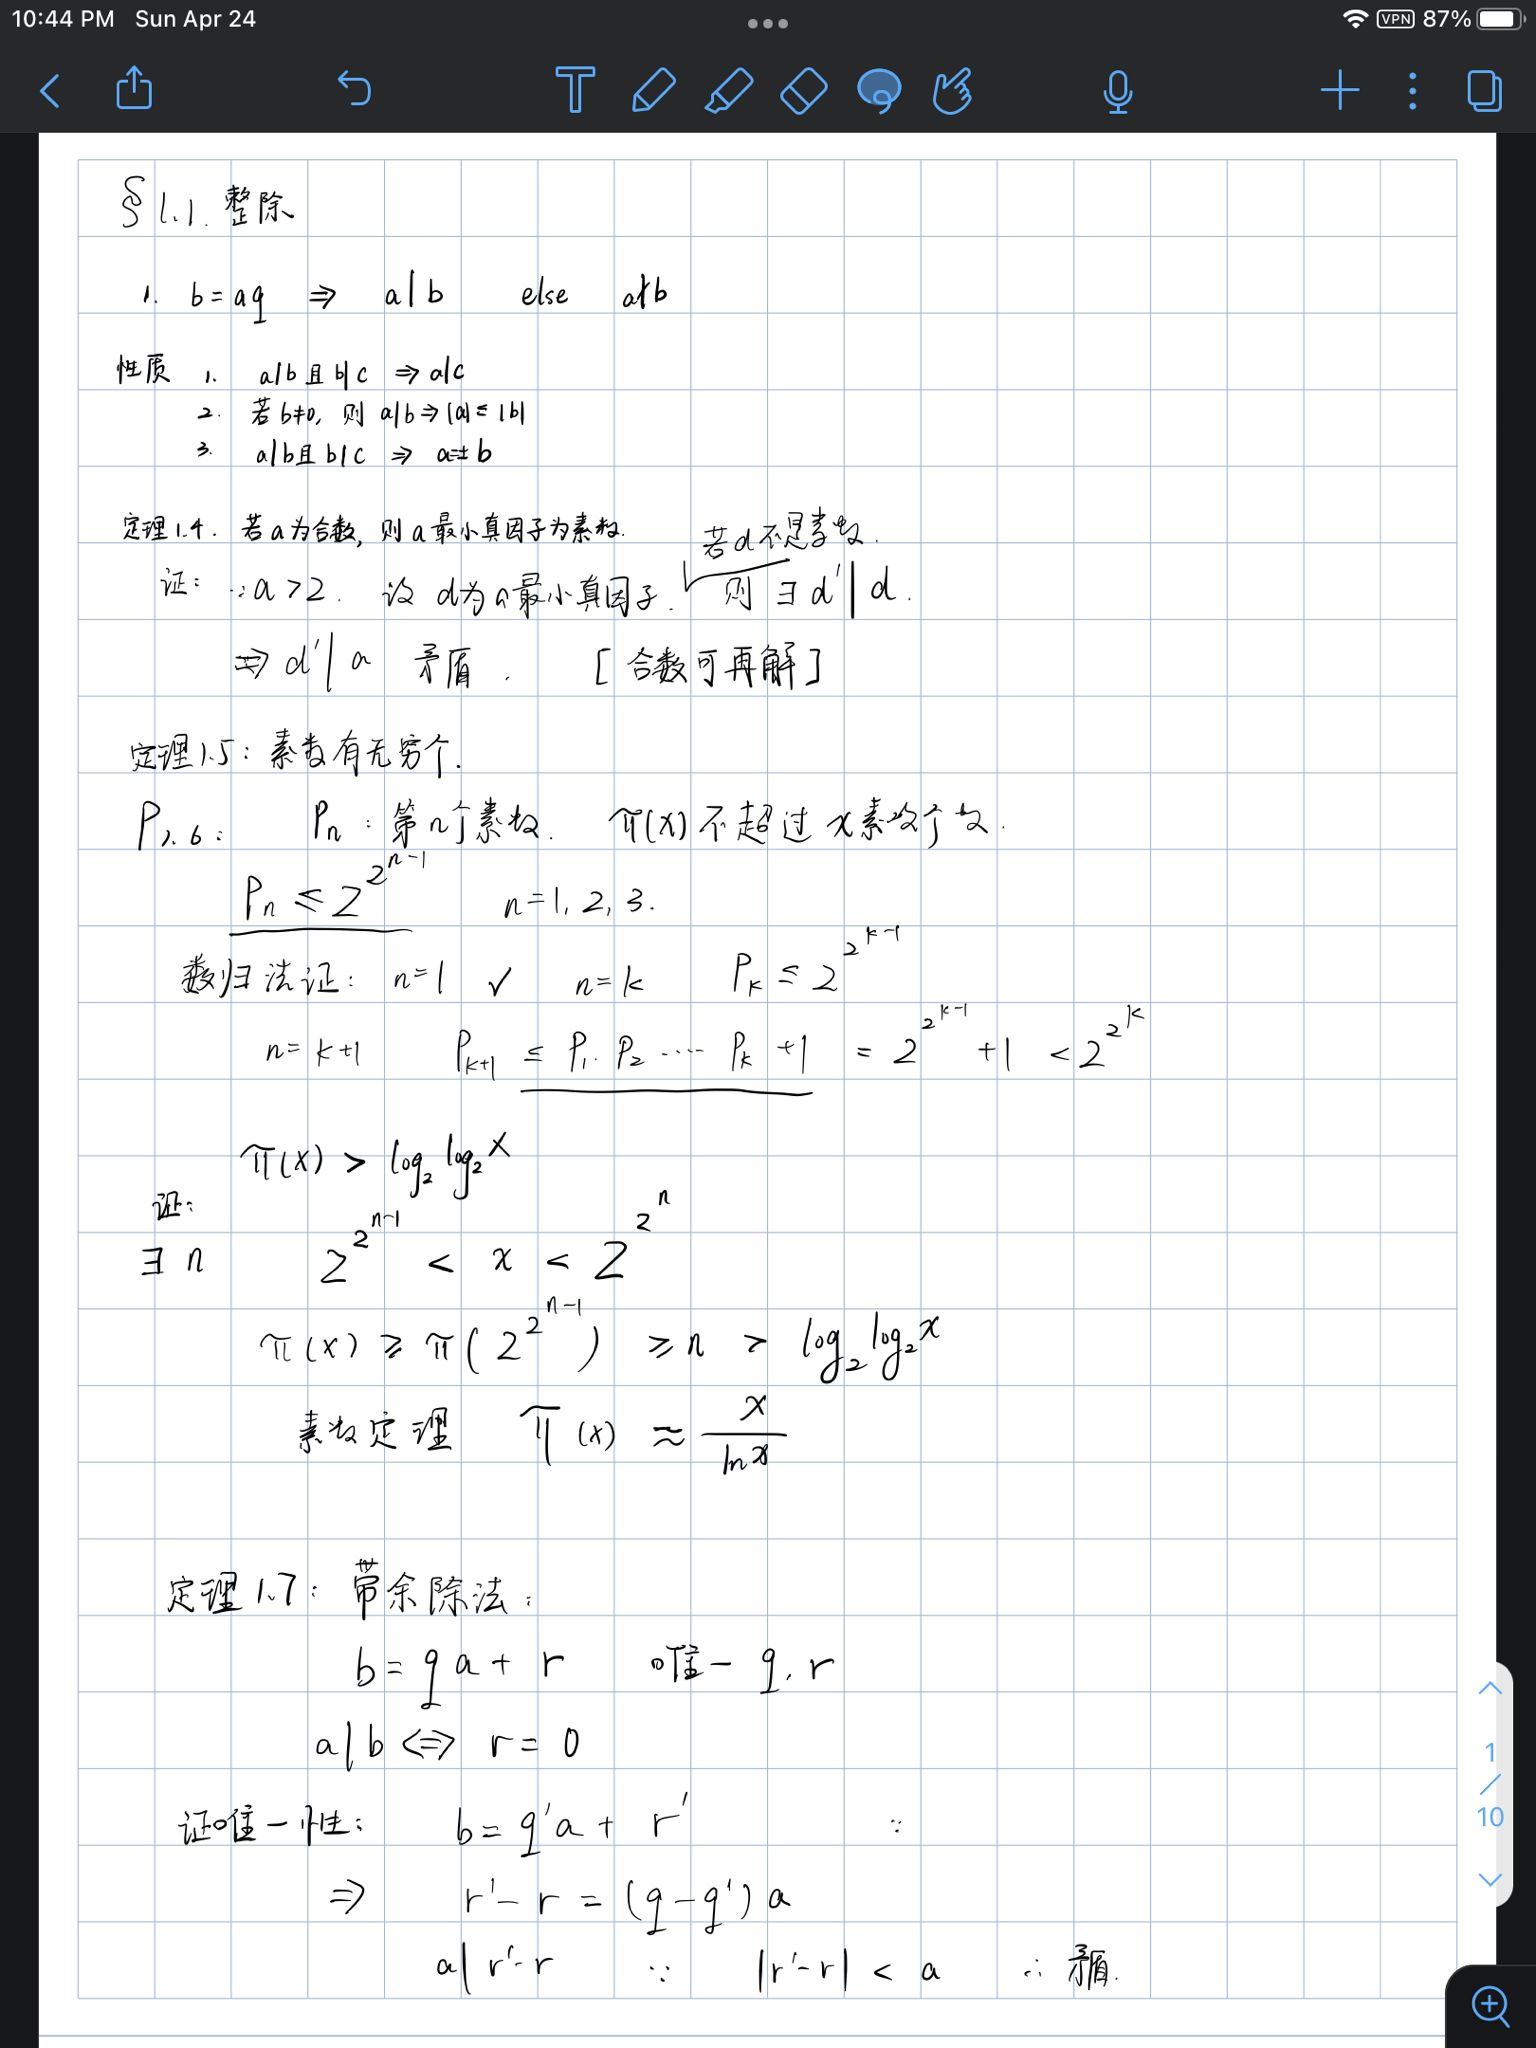 10:44 PM Sun Apr 24
VPN 87%
§1.1. 整除
1. b=aq ⇒ a|b else a∤b
性质 1. a|b且b|c ⇒ a|c
2. 若b≠0, 则 a|b ⇒ |a| ≤ |b|
3. a|b且b|c ⇒ a=±b
定理1.4. 若a为合数, 则a最小真因子为素数.
若d不是素数.
证: ∵a>2. 设d为a最小真因子. 则 ∃d'|d.
⇒ d'|a 矛盾. [合数可再解]
定理1.5: 素数有无穷个.
P1.6: Pn: 第n个素数. π(x)不超过x素数个数.
Pn ≤ 2^2^(n-1) n=1, 2, 3.
数归法证: n=1 ✓ n=k Pk ≤ 2^2^(k-1)
n=k+1 Pk+1 ≤ P1.P2 ···· Pk +1 = 2^2^(k-1) +1 < 2^2^k
π(x) > log₂ log₂ x
证:
∃n 2^2^(n-1) < x < 2^2^n
π(x) ≥ π(2^2^(n-1)) ≥ n > log₂ log₂ x
素数定理 π(x) ≈ x / ln x
定理1.7: 带余除法:
b=qa+r 唯一 q, r
a|b ⇔ r=0
证唯一性: b=q'a+r' ∵
⇒ r'-r=(q-q')a
a|r'-r ∵ |r'-r| < a ∴矛盾.
1
/
10